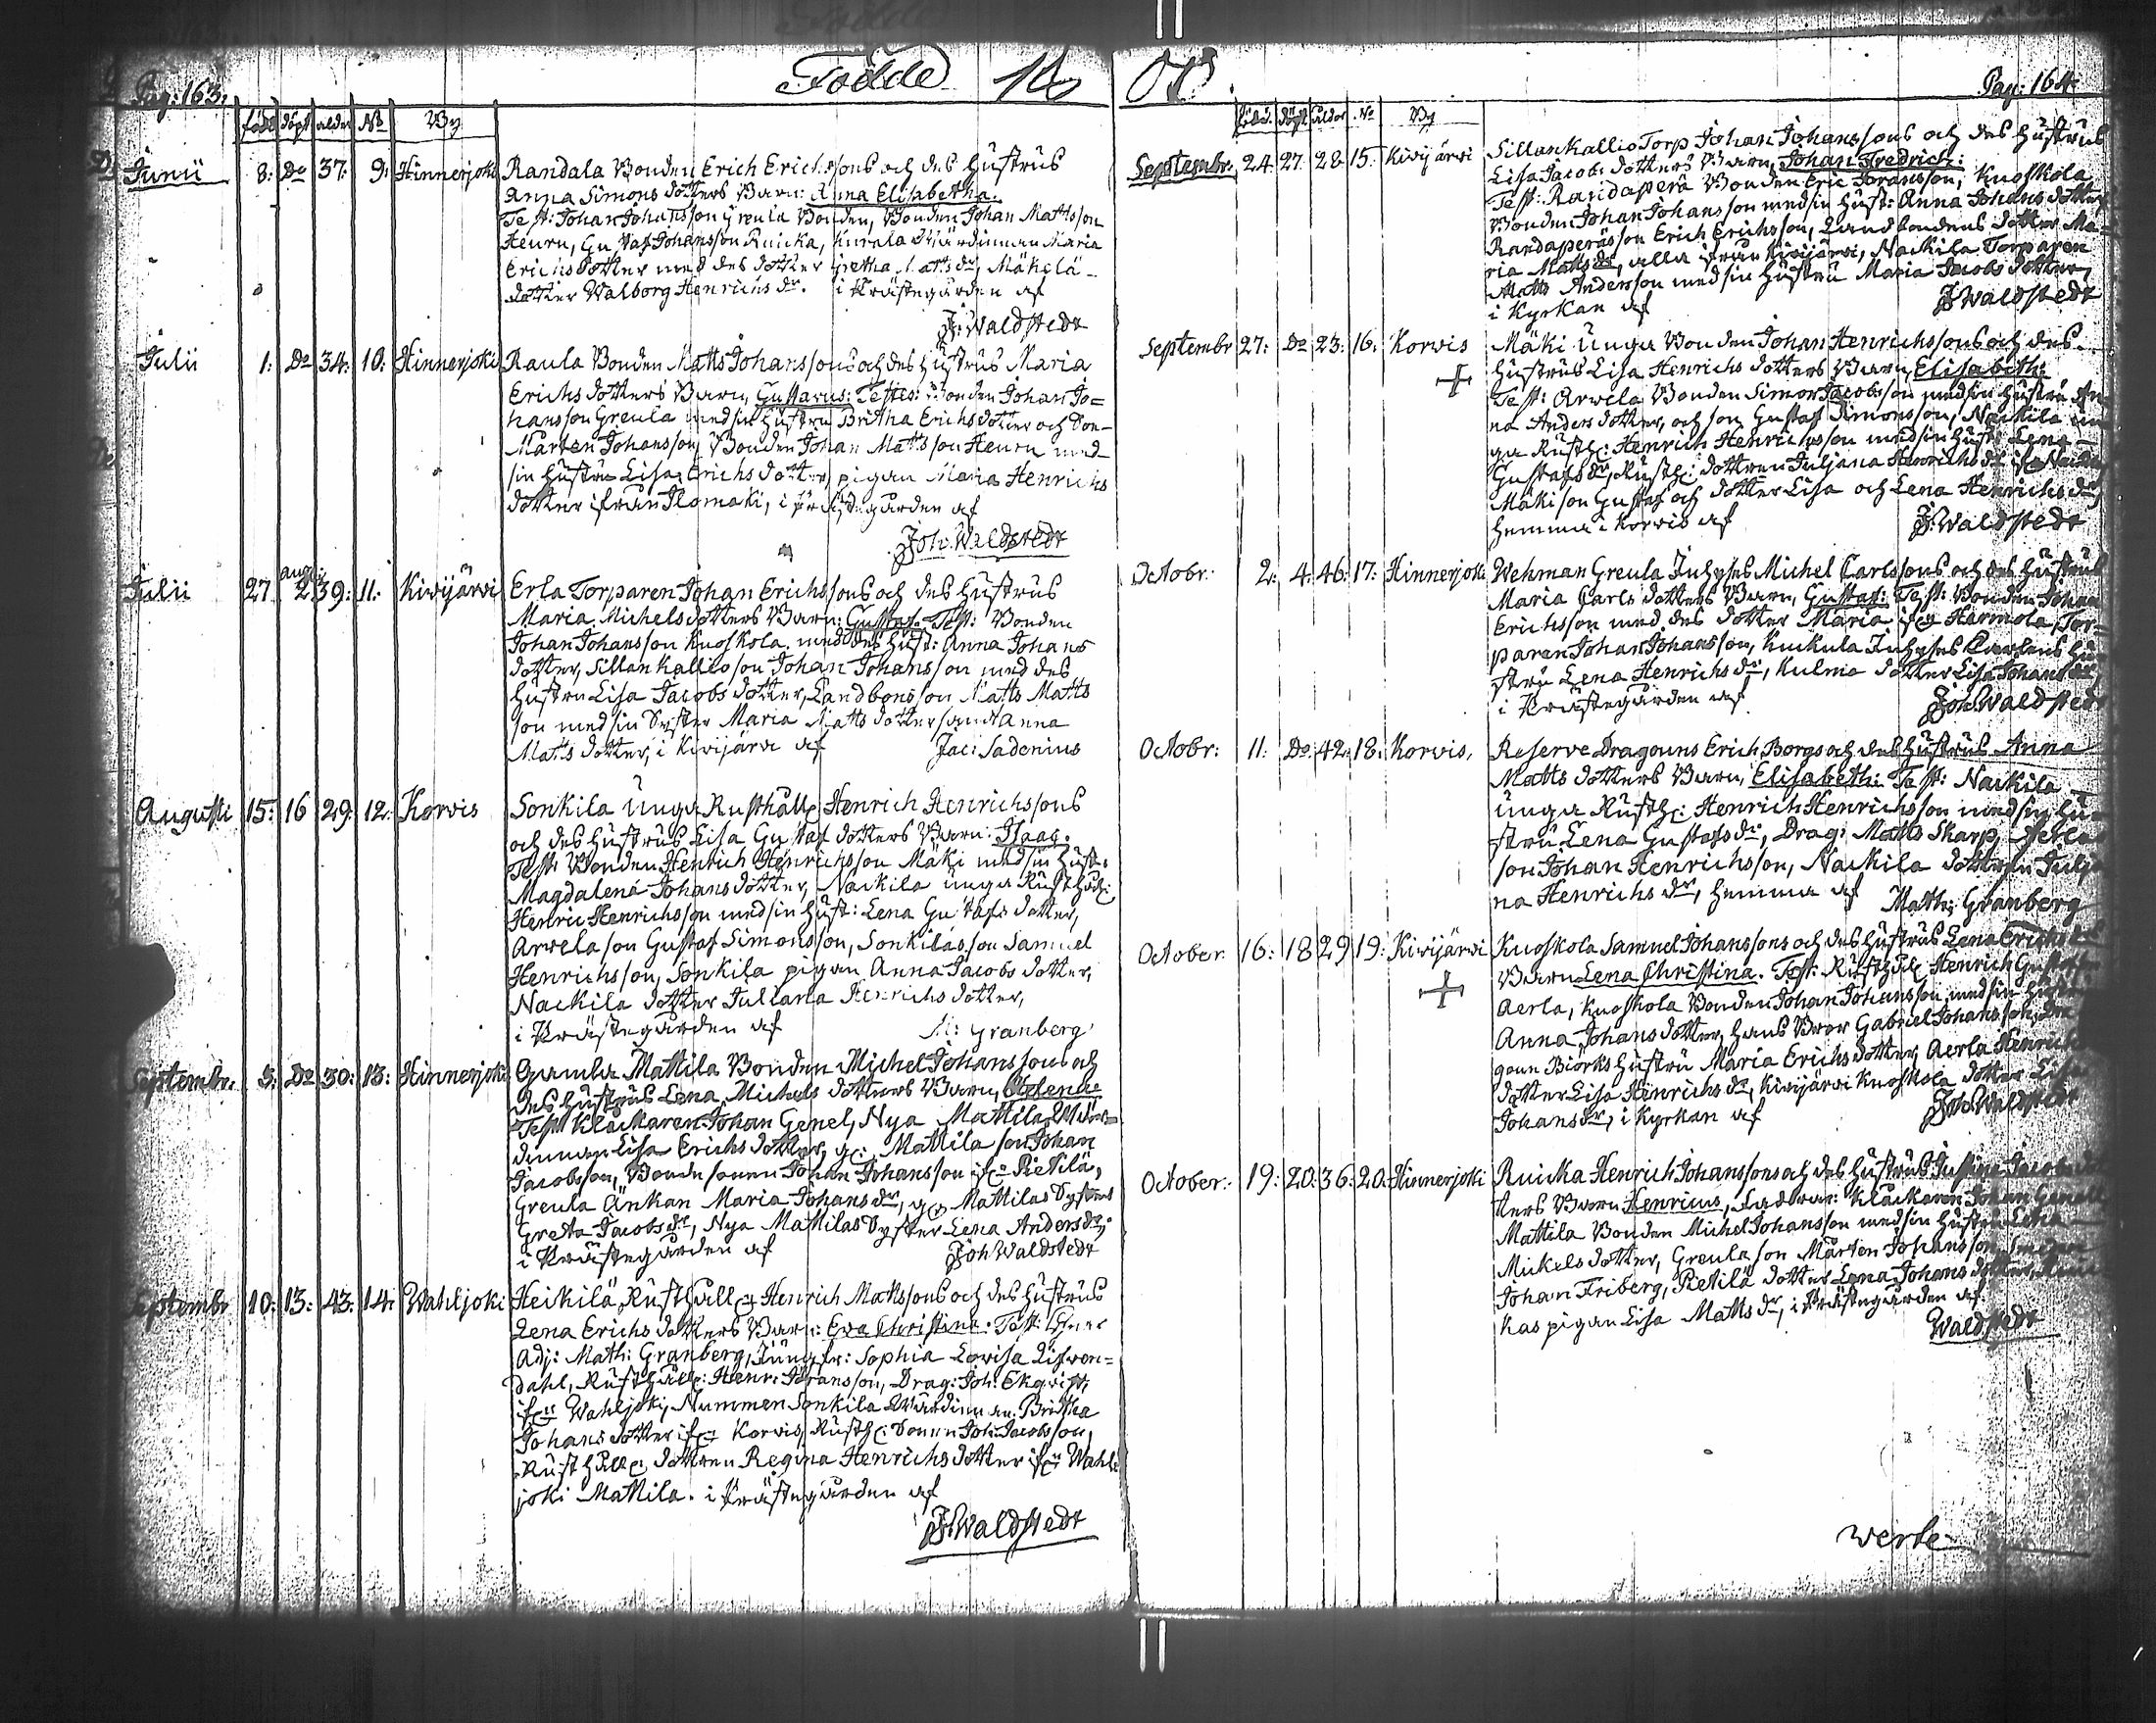 Pag: 163.
Födde
född döpt ålder No By
Junii 8: Do 37: 9: Hinnerjoki Randala Bonden Erich Erichssons och des hustrus
Anna Simons dotters Barn: Anna Elisabetha.
Test: Johan Johansson Greula Bonden, Bonden Johan Mattsson
Heuru, Gustaf Johansson Ruicka, Kurala Wärdinnan Maria
Erichsdotter med des dotter Gretha Matts dr, Mäkelä
dotter Walborg Henrichs dr. i Prästegården af
J: Waldstedt
Julii 1: Do 34: 10: Hinnerjoki Raula Bonden Matts Johanssons och des hustrus Maria
Erichs dotters Barn, Gustavus: Testes: Bonden Johan Jo=
hansson Greula med sin hustru Britha Erichsdotter och Son
Mårten Johansson, Bonden Johan Mattsson Heuru med
sin hustru Lisa Erichs dotter, pigan Maria Henrichs
dotter ifrån Ilomäki, i prästegården af
Joh: Waldstedt
Julii 27 aug: 2 39: 11: Kivijärvi Erla Torparen Johan Erichssons och des hustrus
Maria Michelsdotters Barn: Gustaf. Test: Bonden
Johan Johansson Knoskola med des hust: Anna Johans
dotter, Sillankallio son Johan Johansson med des
hustru Lisa Jacobs dotter, Landbons son Matts Matts
son med sin Syster Maria Matts dotter samt Anna
Matts dotter, i Kivijärvi af Jac: Sadenius
Augusti 15: 16 29: 12: Korvis Sonkila Unga Rusthåll: Henrich Henrichssons
och des hustrus Lisa Gustaf dotters Barn: Isaac.
Test: Bonden Henrich Henrichsson Mäki med sin hust:
Magdalena Johans dotter, Nackila unga Rusthåll:
Henric Henrichsson med sin hust: Lena Gustafs dotter,
Arvela son Gustaf Simonsson, Sonkilas son Samuel
Henrichsson, Sonkila pigan Anna Jacobs dotter,
Nackila dotter Juliana Henrichs dotter,
i Prästegården af M: Granberg
Septembr. 3: Do 30: 13: Hinnerjoki Gamla Mattila Bonden Michel Johanssons och
des hustrus Lena Michels dotters Barn, Helena.
Test: Klåckaren Johan Genel, Nya Mattila Wär=
dinnan Lisa Erichs dotter, g: Mattila son Johan
Jacobsson, Bonde sonen Johan Johansson ifrn Pietilä,
Greula Änkan Maria Johans dr, g: Mattilas Syster
Greta Jacobs dr, Nya Mattilas Syster Lena Anders dr,
i Prästegården af Joh Waldstedt
Septembr 10: 13: 43: 14: Wahljoki Heikilä Rusthåll: Henrich Mattssons och des hustrus
Lena Erichs dotters Barn: Eva Christina. Test:
Adj: Math: Granberg, Jungfr: Sophia Lovisa
dahl, Rusthåll: Henr: Göransson, Drag: Joh: Ekqvist,
ifrn Wahljoki, Nummen Sonkila Wärdinnan Britha
Johans dotter ifr: Korvis, Rusth: Sonen Joh: Jacobsson,
Rusthåll: dottren Regina Henrichs dotter ifrn Wahl
joki Mattila. i Prästegården af
J: Waldstedt
Pag: 164
född. döpt ålder No By
Septembr. 24. 27. 28. 15. Kivijärvi Sillankallio Torp Johan Johanssons och des hustrus
Lisa Jacobs dotters Barn, Johan Fredrich:
Test: Randaperä Bonden Eric Göransson, Knoskola
Bonden Johan Johansson med sin hust: Anna Johans dotter,
Randaperäs son Erich Erichsson, Landbondens dotter Ma=
ria Matts dr, alla ifrån Kivijärvi, Nackila Torparen
Matts Andersson med sin hustru Maria Jacobs dotter,
i Kyrkan af J Waldstedt
Septembr 27: Do 23: 16: Korvis Mäki Unga Bonden Johan Henrichssons och des
hustrus Lisa Henrichs dotters Barn, Elisabeth:
Test: Arvela Bonden Simon Jacobsson med sin hustru An
na Anders dotter, och son Gustaf Simonsson, Nackila un
ga Rusth: Henrich Henrichsson med sin hust: Lena
Gustafs dr, Rusth: dottren Juliana Henrichs dr
Mäki son Gustaf och dotter Lisa och Lena Henrichs dr,
hemma i Korvis af J: Waldstedt
Octobr: 2: 4: 46: 17: Hinnerjoki Wehman Greula Inhyses Michel Carlssons och des hustrus
Maria Carls dotters Barn, Gustaf: Test: Bonden Johan
Erichsson med des dotter Maria ifrn Harmola, Tor=
paren Johan Johansson, Kuckula Inhyses Karlens hu
stru Lena Henrichs dr, Kulma dotter Lisa Johans dr,
i Prästegården af Joh: Waldstedt
Octobr: 11: Do: 42: 18: Korvis, Reserve Dragouns Erich Borgs och des hustrus Anna
Matts dotters Barn, Elisabeth: Test: Nackila
unga Rusth: Henrich Henrichsson med sin hu
stru Lena Gustafs dr, Drag: Matts Skarp,
son Johan Henrichsson, Nackila dottren Julja
na Henrichs dr, hemma af Math: Granberg
October 16: 18 29 19: Kivijärvi Knoskola Samuel Johanssons och des hustrus Lena Erichs
Barn Lena Christina. Test: Rusthåll: Henrich Gustafsson
Aerla, Knoskola Bonden Johan Johansson med sin hustru
Anna Johans dotter, hans Bror Gabriel Johansson, Dra
goun Biörks hustru Maria Erichs dotter, Aerla Henrichs
dotter Lisa Henrichs dr, Kivijärvi Knoskola dotter Lisa
Johans dr, i Kyrkan af Joh: Waldstedt
October: 19: 20: 36: 20: Hinnerjoki Ruicka Henrich Johanssons och des hustrus Justina Jacobs dot
ters Barn Henricus, Faddrar: Klåckaren Johan Genell
Mattila Bonden Michel Johansson med sin hustru Lena
Mickels dotter, Greula son Mårten Johansson,
Johan Friberg, Pietilä dotter Lena Johans dotter,
kas pigan Lisa Matts dr, i Prästegården af
Waldstedt
verte